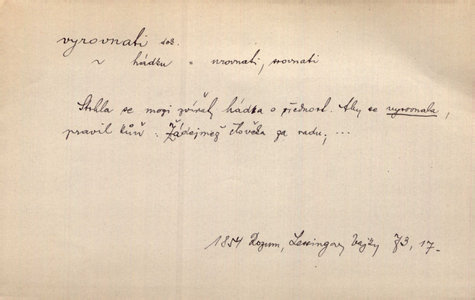 vyrovnati dok.
~ hádku = urovnati, srovnati
Strhla se mezi zvířaty hádka o přednost. Aby se vyrovnala,
pravil kůň: Žádejmež člověka za radu; ...
1854 Rozum, Lessingovy bajky 73, 17.